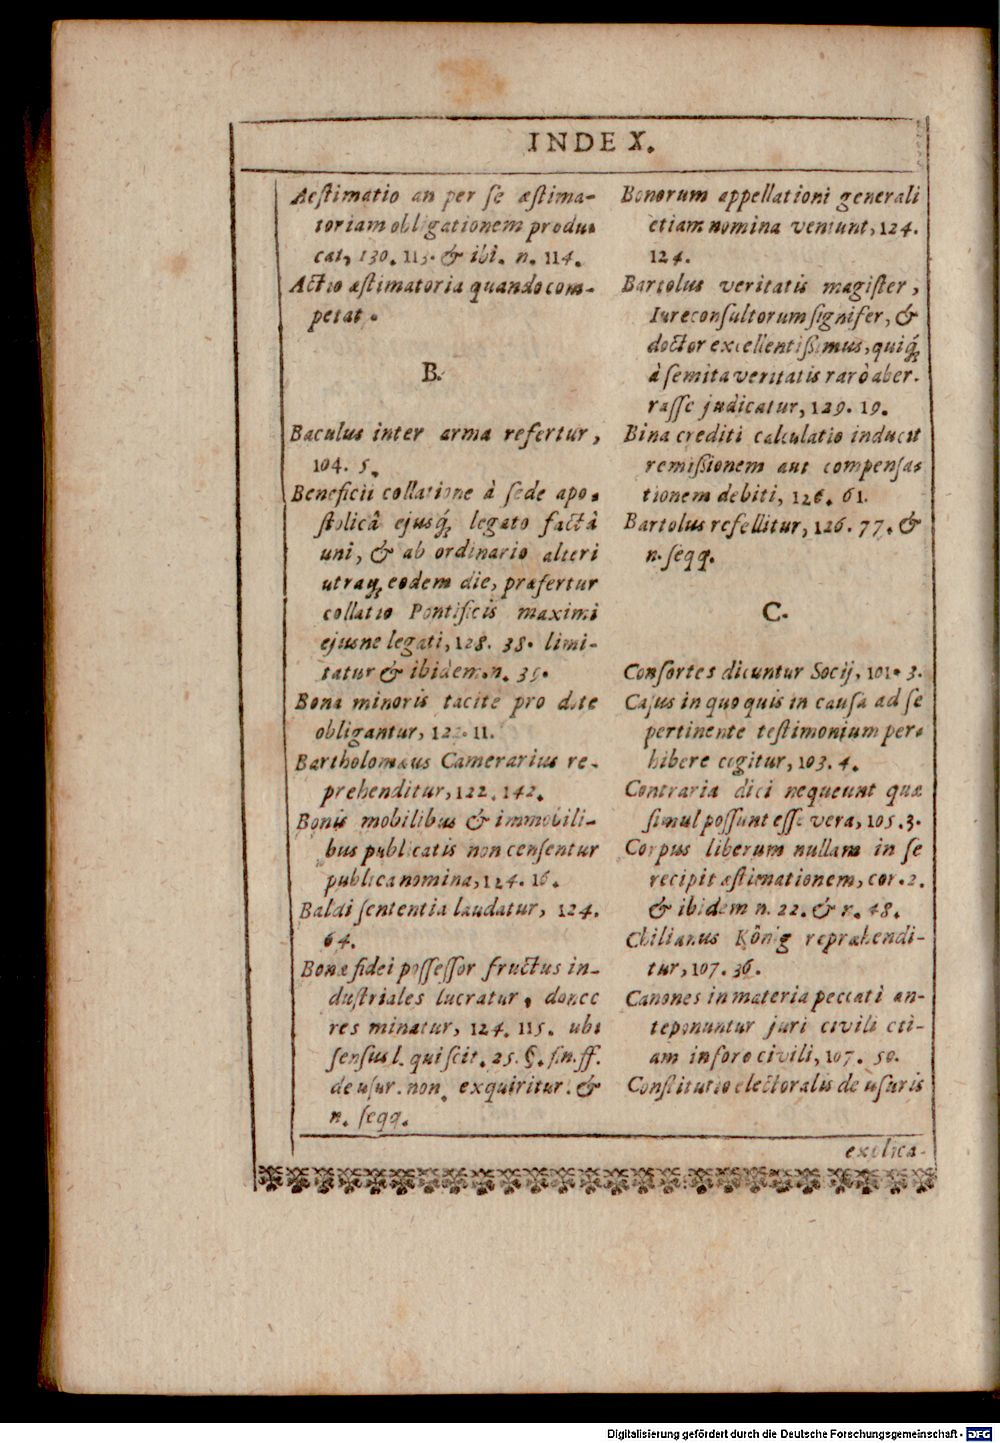 INDEX.
Aeſtimatio an per ſe æſtima-
toriam obligationem produ-
cat, 130. 113. & ibi. n. 114.
Actio æſtimatoria quando com-
petat.
B.
Baculus inter arma refertur,
104. 5.
Beneficii collatione à ſede apo-
ſtolicâ ejusq́; legato factâ
uni, & ab ordinario alteri
utraq; eodem die, præfertur
collatio Pontificis maximi
ejusne legati, 128. 38. limi-
tatur & ibidem. n. 39.
Bona minoris tacite pro dote
obligantur, 122. 11.
Bartholomæus Camerarius re-
prehenditur, 122. 142.
Bonis mobilibus & immobili-
bus publicatis non cenſentur
publica nomina, 124. 16.
Baldi ſententia laudatur, 124.
64.
Bonæ fidei poſſeſſor fructus in-
duſtriales lucratur, donec
res minatur, 124. 115. ubi
ſenſus l. qui ſcit. 25. §. fin. ff.
de uſur. non exquiritur. &
n. ſeqq.
Bonorum appellationi generali
etiam nomina veniunt, 124.
124.
Bartolus veritatis magiſter,
Iureconſultorum ſignifer, &
doctor excellentiſſimus, quiq́;
à ſemita veritatis rarò aber-
raſſe judicatur, 129. 19.
Bina crediti calculatio inducit
remiſſionem aut compenſa-
tionem debiti, 126. 61.
Bartolus refellitur, 126. 77. &
n. ſeqq.
C.
Conſortes dicuntur Socij, 101. 3.
Cajus in quo quis in cauſa ad ſe
pertinente teſtimonium per-
hibere cogitur, 103. 4.
Contraria dici nequeunt quæ
ſimul poſſunt eſſe vera, 105. 3.
Corpus liberum nullam in ſe
recipit æſtimationem, cor. 2.
& ibidem n. 22. & n. 48.
Chilianus Kônig repræhendi-
tur, 107. 36.
Canones in materia peccati an-
teponuntur juri civili eti-
am in foro civili, 107. 50.
Conſtitutio electoralis de uſuris
explica-
Digitalisierung gefördert durch die Deutsche Forschungsgemeinschaft - DFG